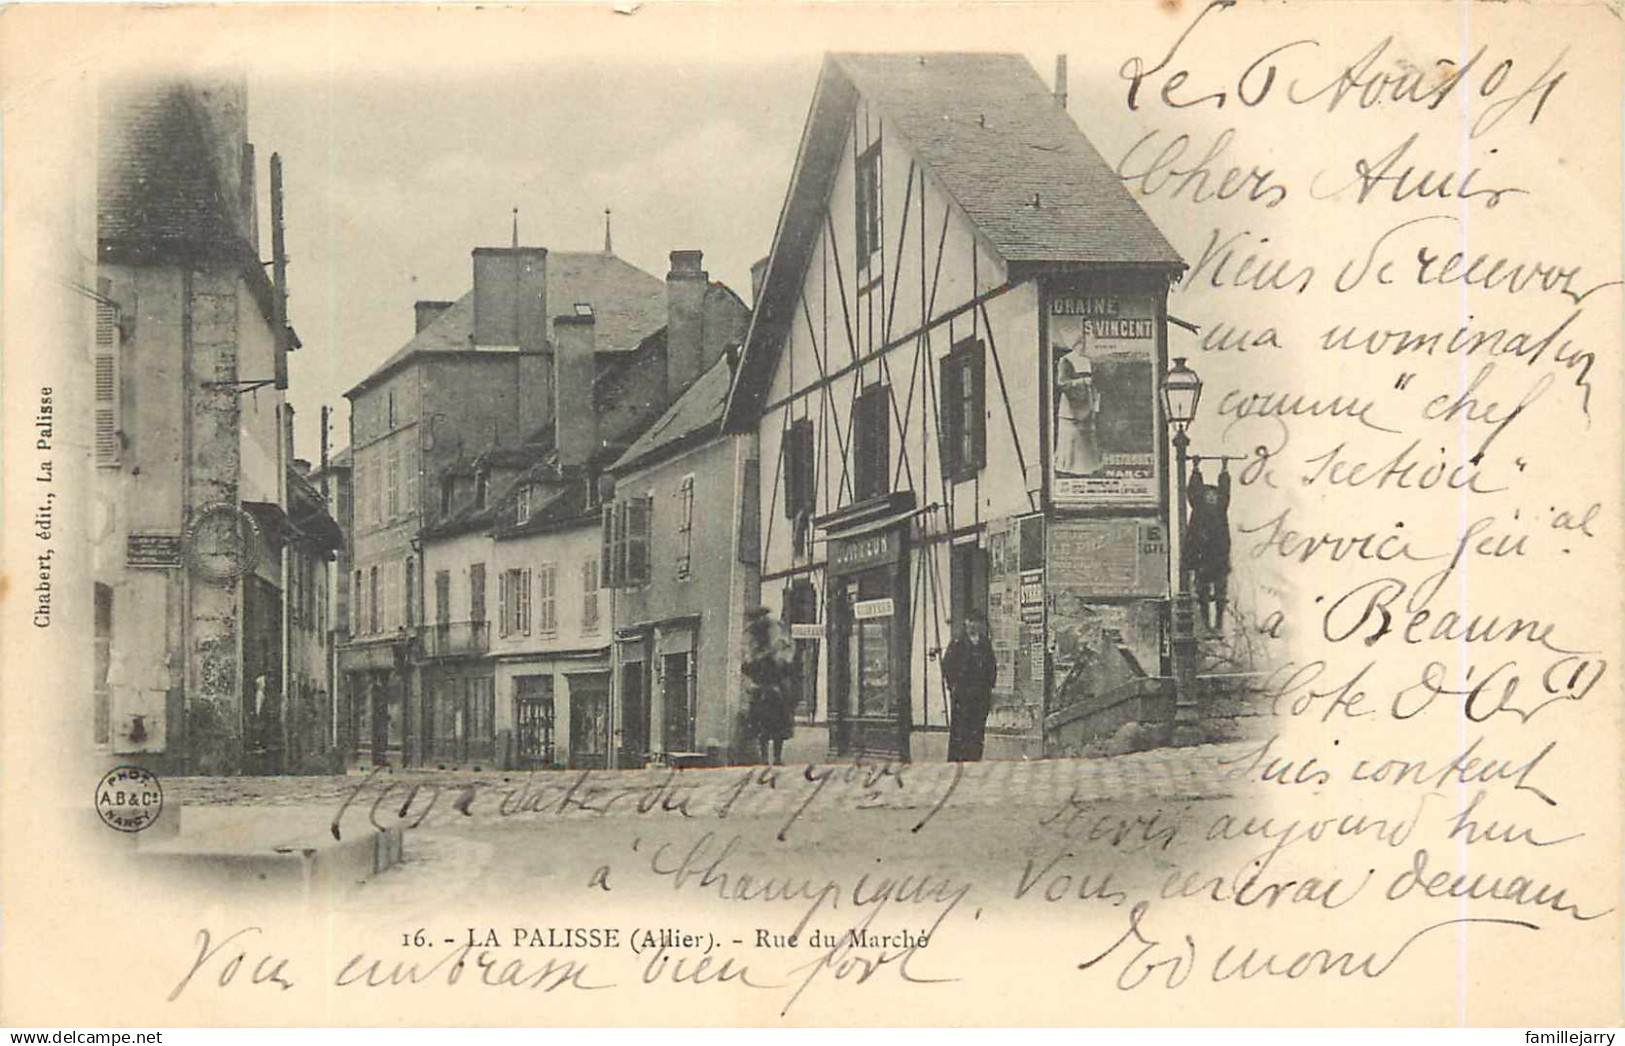 Le 6 Août 04
Chers Amis
Viens de recevoir
ma nomination
comme "chef
de section"
service Gén.al
à Beaune
Cote d'Or (1)
Suis content
Ecris aujourd'hui
à Champigny, Vous écrirai demain
((1) à dater du 1er
Vous embrasse bien fort
Edmond
16. - LA PALISSE (Allier). - Rue du Marché
Chabert, édit., La Palisse
PHOT.
A.B & Cie
NANCY
GRAINE
St VINCENT
NANCY
COIFFEUR
famillejarry
delcampe.net